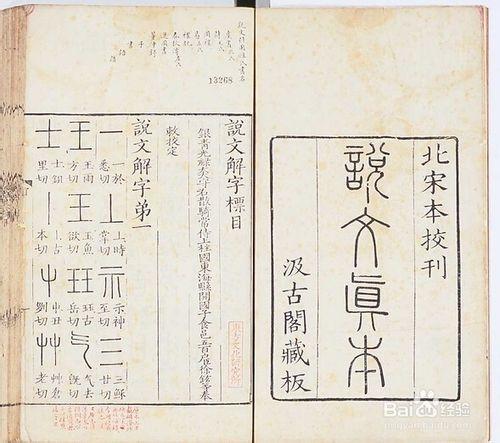 北宋本挍刊
說文真本
汲古閣藏板
13268
說文解字標目
銀青光祿大夫守右散騎常侍上柱國東海縣開國子食邑五百戶徐鉉等奉
敕挍定
說文解字第一
一 於悉切
丄 時掌切
示 神至切
三 穌甘切
王 雨方切
王 魚欲切
玨 古岳切
气 去旣切
士 鉏里切
丨 古本切
屮 丑劉切
艸 倉老切
Baidu经验
jingyan.baidu.com